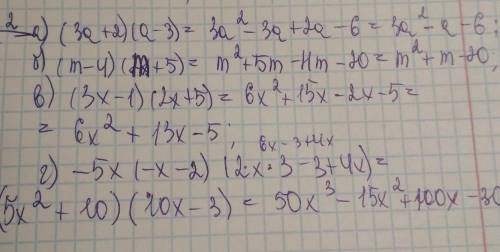 2 а) (3a+2)(a-3) = 3a² - 3a + 2a - 6 = 3a² - a - 6;
б) (m-4)(m+5) = m² + 5m - 4m - 20 = m² + m - 20,
в) (3x-1)(2x+5) = 6x² + 15x - 2x - 5 =
= 6x² + 13x - 5;
6x - 3 + 4x
г) -5x(-x-2)(2x·3-3+4x) =
(5x² + 10)(10x-3) = 50x³ - 15x² + 100x - 30